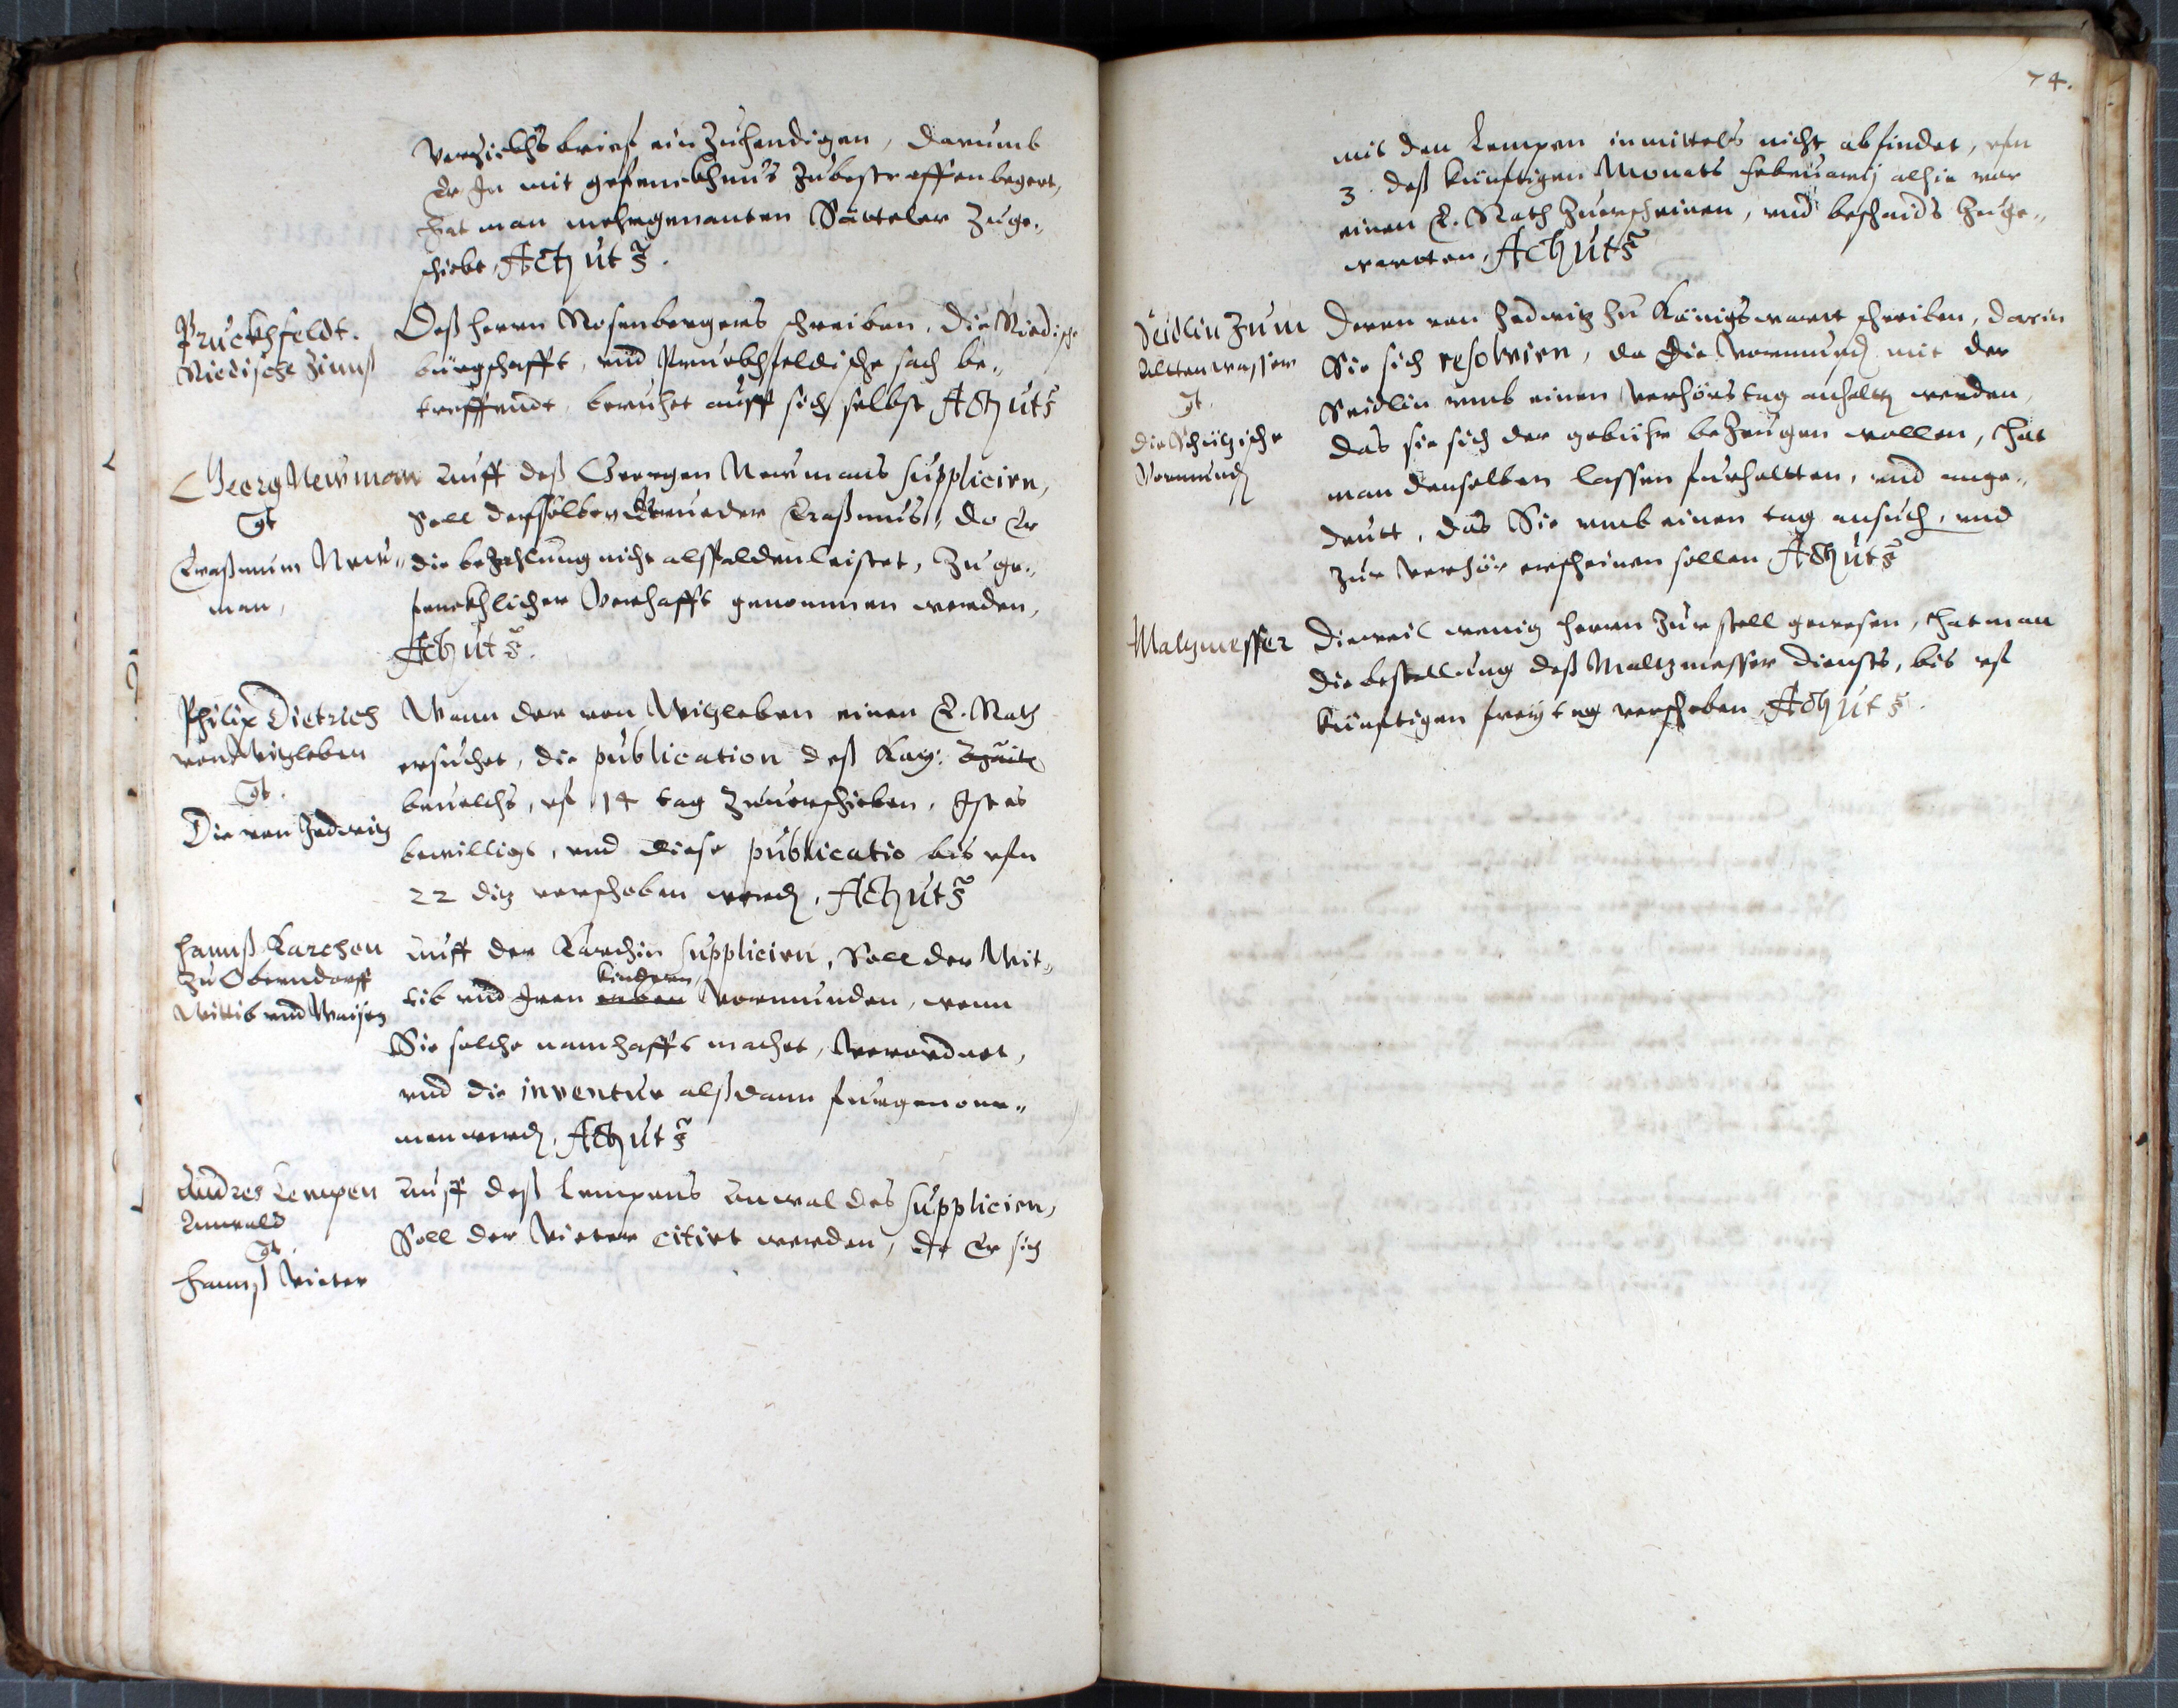 Verzichtsbrief einzuhendigen, darumb
Er In mit gefencknus zubestraffen begert,
hat man mehrgenanten Sätteler zuge„
schickt, Act. ut s.
Pruckhfeldt.
Riedische Zinnß
Deß herrn Rosenbergers schreiben, die Riedische
bürgschafft, und Pruckhfeldische sach be„
treffendt, beruhet auff sich selbst Act. ut s.
Georg Newman
Ct.
Eraßmum New„
man,
Auff deß Georgen Newmans supplicirn,
soll desselben Brueder Eraßmus, do Er
die bezahlung nicht alßbalden leistet, zu ge„
fencklicher Verhafft genommen werden,
Act. ut s.
Philip Dietrich
von Witzleben
Ct.
Die von Zedwitz
Wann der von Witzleben einen E. Rath
ersuchet, die publication deß Kay:
beuelchs, uf 14 tag zuuerschieben, Ist es
bewilligt, und diese publicatio bis ufn
22 ditz verschoben word. Act. ut s.
Hannß Karchen
zu Oberndorff
Wittib und Waisen
Auff der Karchin supplicirn, Soll der Wit„
kindern
tib und Iren erben Vormunden, wenn
Sie solche namhafft machet, verordnet,
und die inventur alßdann furgenom„
men werd. Act. ut s.
Andres Lempen
Anwald
Ct.
Hannß Vieter
Auff deß Lempens Anwaldes supplicirn,
Soll der Vieter citirt werden, do Er sich
74.
mit den Lempen inmittels nicht abfindet, ufn
3. deß künftigen Monats Februarij alhie vor
einen E. Rath zuerscheinen, und beschaids zuge„
wartten, Act. ut s.
Seidlin zum
Alttenwasser
Ct.
die Schützische
Vormund.
Deren von Zedwitz zu Königswart schreiben, darin
Sie sich resolvirn, do die Vormund mit der
Seidlin umb einen verhörstag anhalten werden,
das sie sich der gebühr bezeugen wollen, hat
man denselben lassen furhaltten, und ange„
deutt, das Sie umb einen tag ansuch, und
zur Verhör erscheinen sollen Act. ut s.
Maltzmesser
Dieweil wenig herrn zur stell gewesen, hat man
die bestellung deß Maltzmesser diensts, bis uf
künftigen freytag verschoben, Act. ut s.